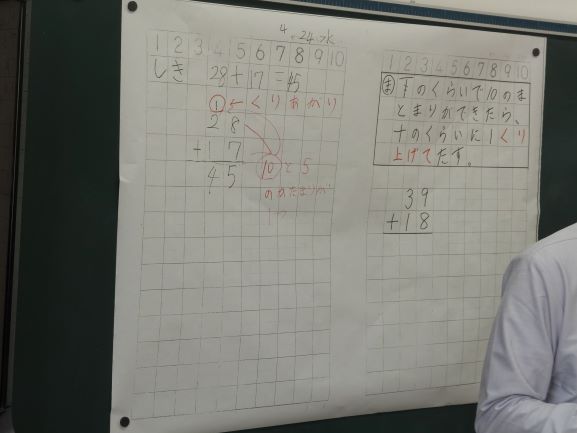 4.24 水
1 2 3 4 5 6 7 8 9 10
しき 28+17=45
① ←くりあがり
28
+17
45
10と5
のかたまりが
1つ
1 2 3 4 5 6 7 8 9 10
ま すのくらいで10のま
とまりができたら、
十のくらいに1くり
上げてたす。
39
+18